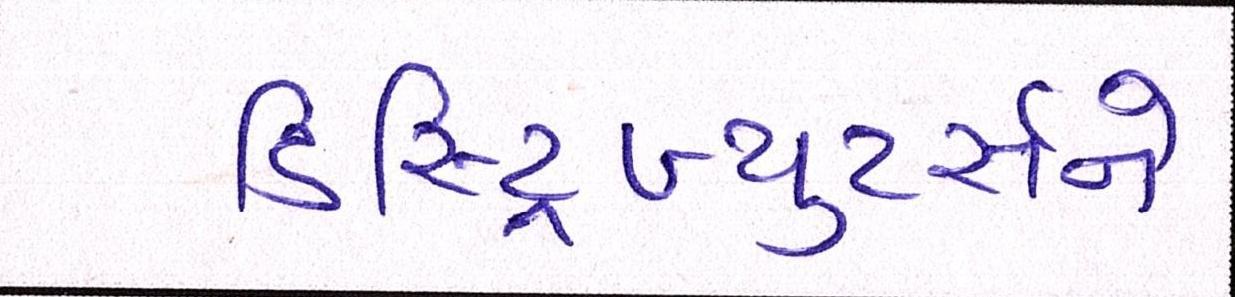 ડિસ્ટ્રિબ્યુટર્સને